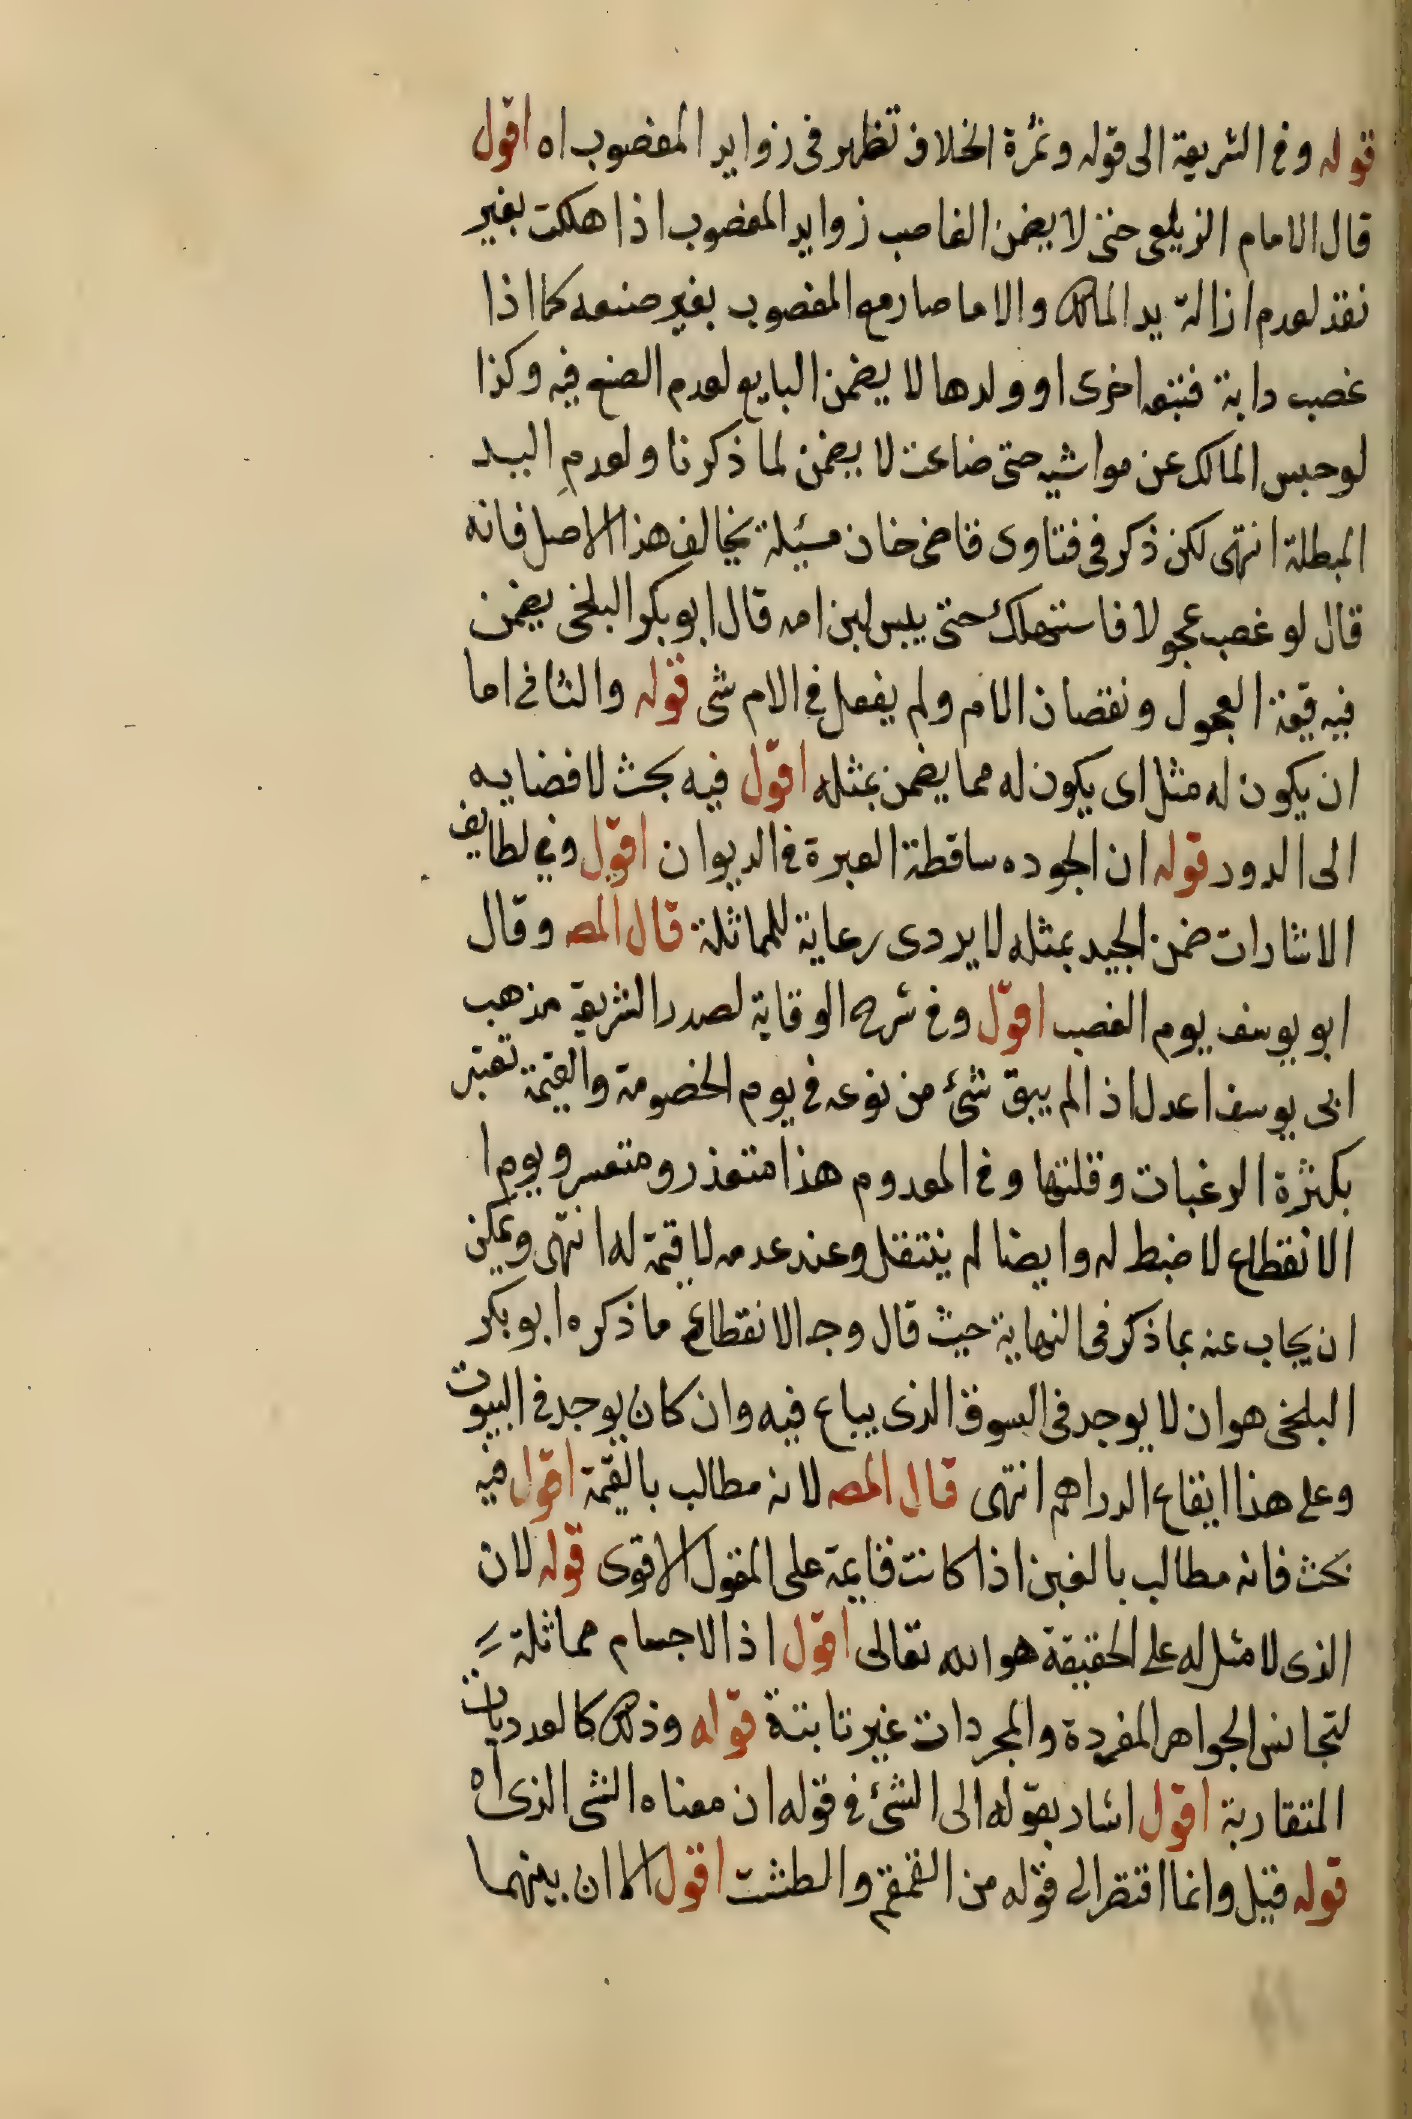 قوله وفي الشريعة الى قوله وثمرة الخلاف تظهر في زوايد المغصوب اه اقول
قال الامام الزيلعي حتى لا يضمن الغاصب زوايد المغصوب اذا هلكت بغير
تعد لعدم ازالة يد المالك والاما صار مع المغصوب بغير صنعه كما اذا
غصب دابة فتبعها اخرى او ولدها لا يضمن البايع لعدم الصنع فيه وكذا
لو حبس المالك عن مواشيه حتى ضاعت لا يضمن لما ذكرنا ولعدم اليد
المبطلة انتهى لكن ذكر في فتاوى قاضي خان مسئلة يخالف هذا الاصل فانه
قال لو غصب عجولا فاستهلك حتى يبس لبن امه قال ابو بكر البلخي يضمن
فيه قيمة العجول ونقصان الام ولم يفعل في الام شي قوله والثاني اما
ان يكون له مثل اى يكون له مما يضمن بمثله اقول فيه بحث لافضايه
الى الدور قوله ان الجوده ساقطة العبرة في الديوان اقول وفي لطايف
الاشارات ضمن الجيد بمثله لا يردى رعاية للمماثلة قال المصه وقال
ابو يوسف يوم الغصب اقول وفي شرح الوقاية لصدر الشريعة مذهب
ابى يوسف اعدل اذ الم يبق شئ من نوعه في يوم الخصومة والقيمة تعتبر
بكثرة الرغبات وقلتها وفي المعدوم هذا متعذر ومتعسر ويوم ا
الانقطاع لا ضبط له وايضا لم ينتقل وعند عدمه لا قيمة له انتهى ويمكن
ان يجاب عنه بما ذكر في النهاية حيث قال وحد الانقطاع ما ذكره ابو بكر
البلخي هو ان لا يوجد في السوق الذى يباع فيه وان كان يوجد في البيوت
وعلى هذا ايقاع الدراهم انتهى قال المصه لانه مطالب بالقيمة اقول فيه
بحث فانه مطالب بالغبن اذا كانت قايمة على القول الاقوى قوله لان
الذى لا مثل له على الحقيقة هو الله تعالى اقول اذ الاجسام مماثلة
لتجانس الجواهر المفردة والمجردات غير ثابتة قوله وذلك كالعدديات
المتقاربة اقول اشار بقوله الى الشئ في قوله ان معناه الشى الذى اه
قوله قيل وانما اقتصر الى قوله من القمقم والطشت اقول الا ان بينهما